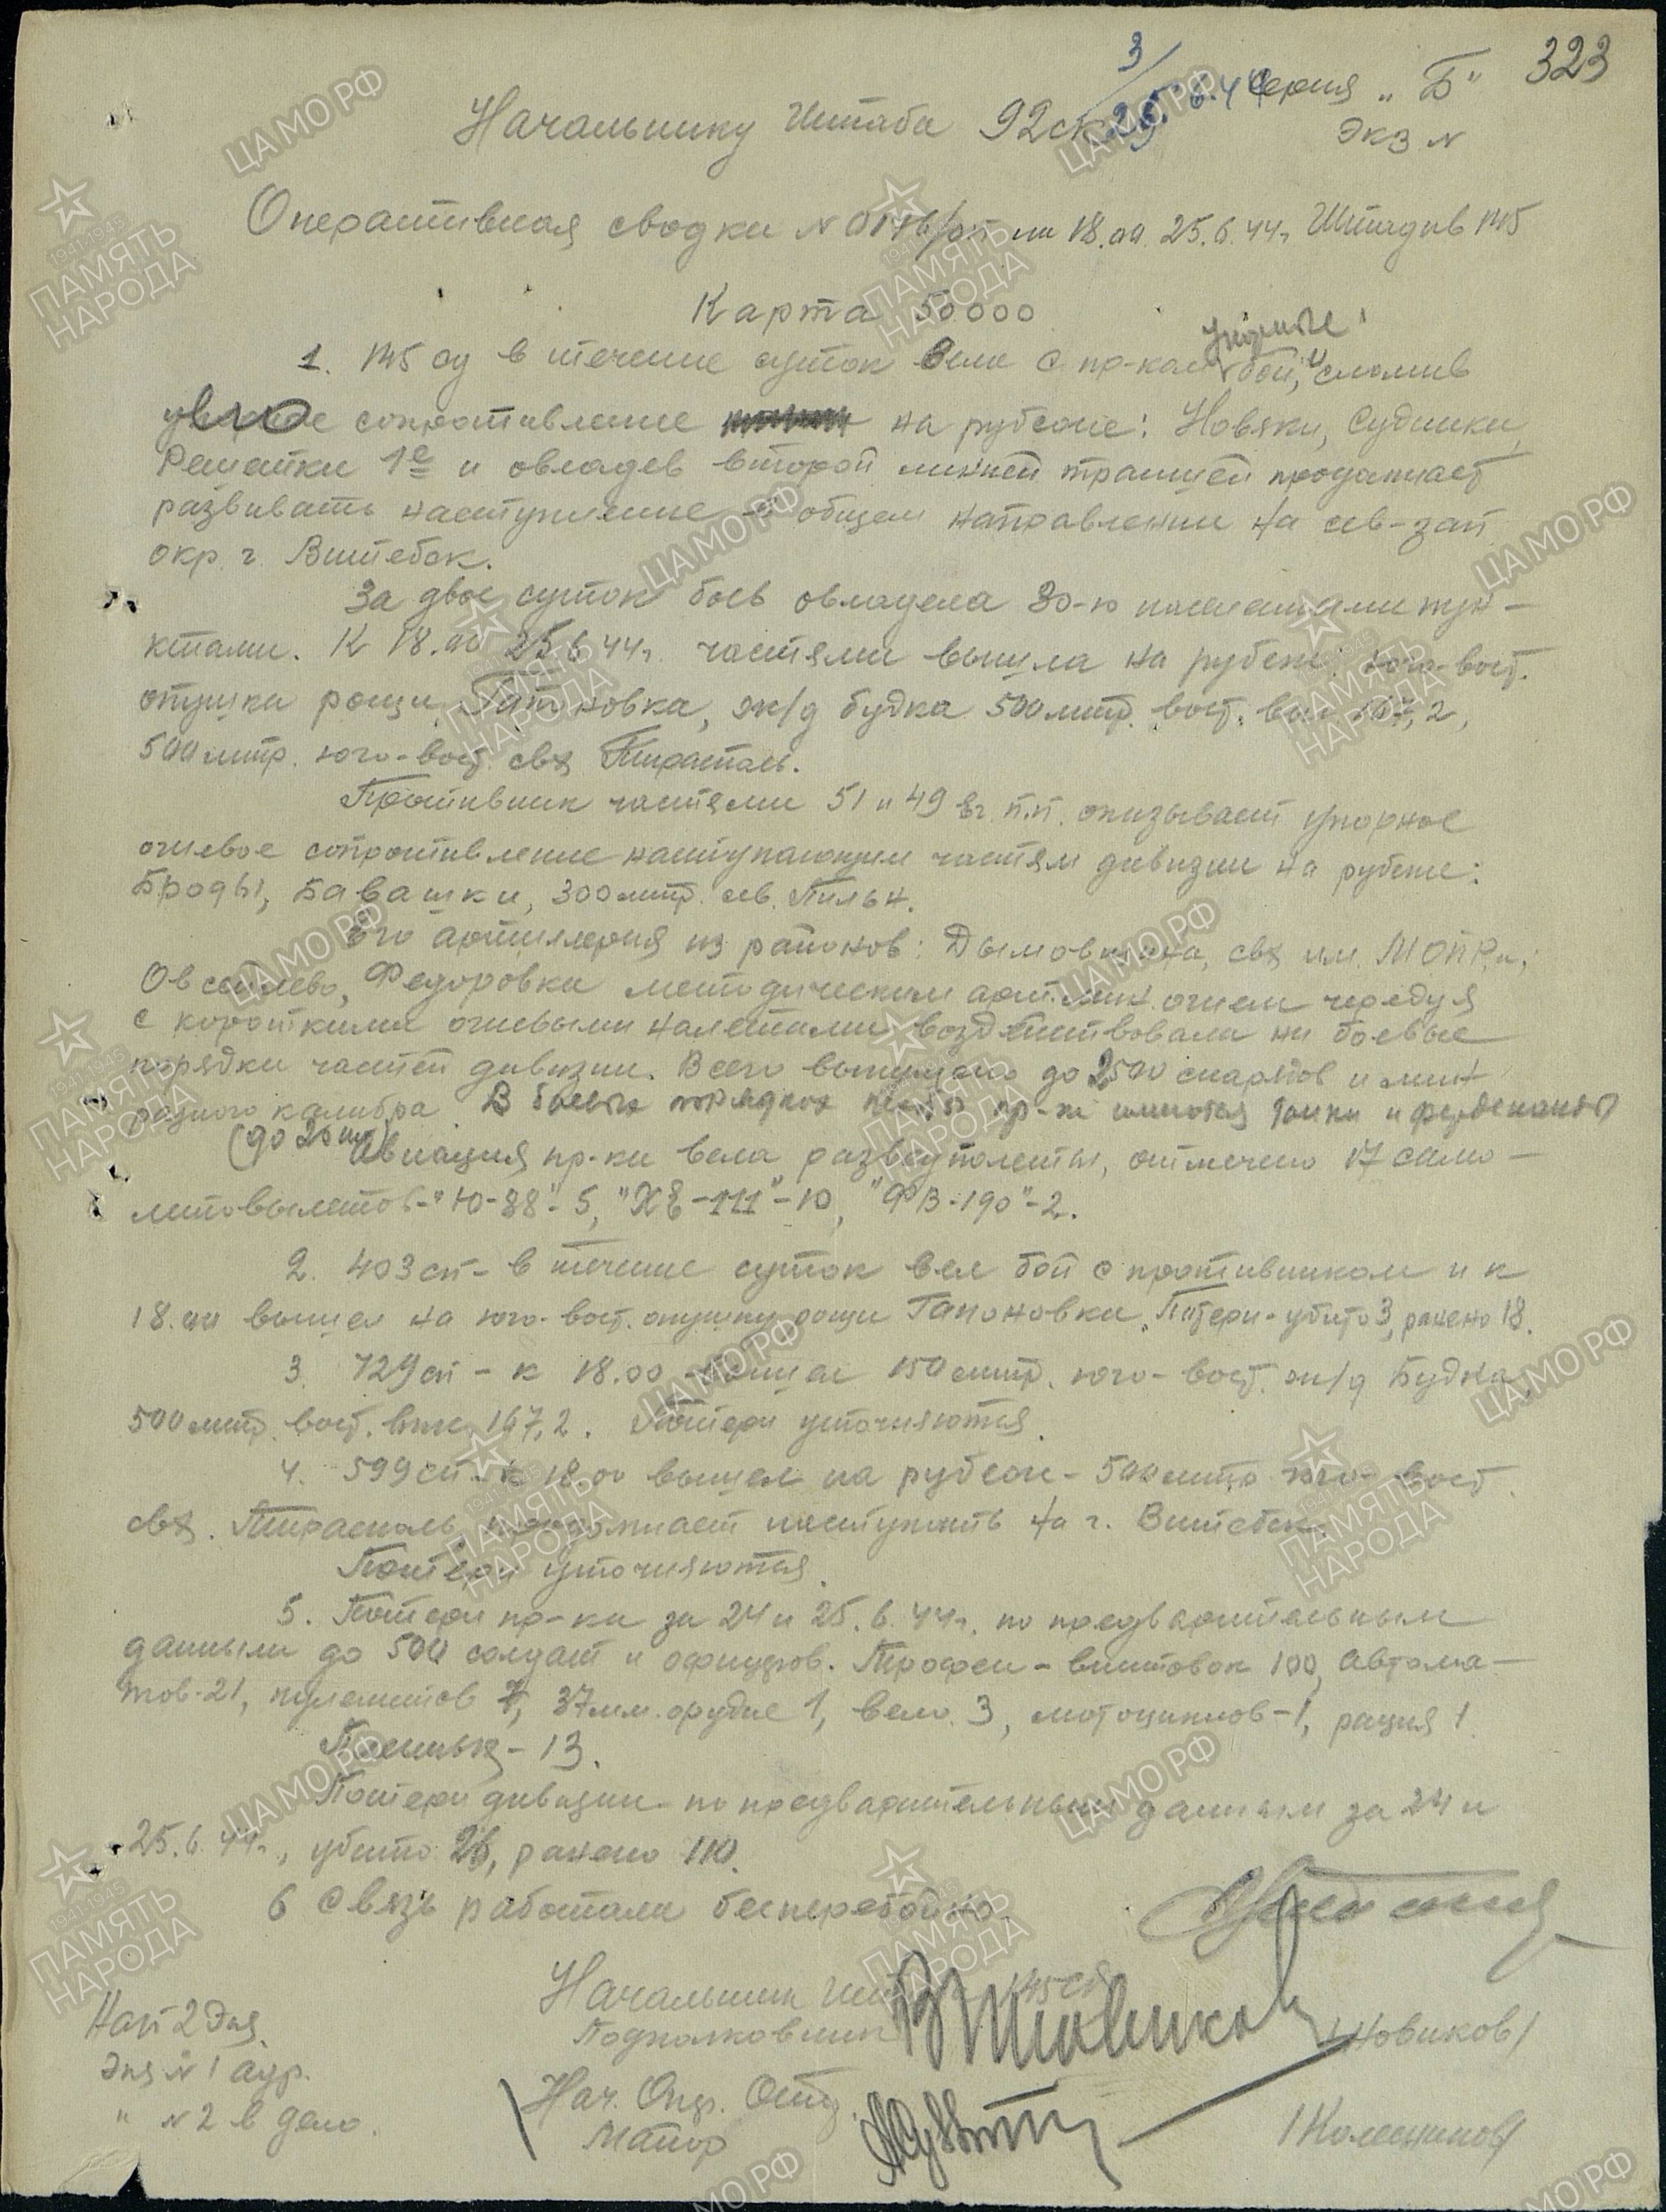 323
3/25.6.44
Серия "Б"
Экз №
Начальнику Штаба 92ск
Оперативная сводка № к 18.00 25.6.44г. Штадив 145
Карта 50000
упорные
1. 145 сд в течение суток вела с пр-ком бои, и сломив
сопротивление на рубеже: Новяки, Судники,
Решетки 1е и овладев второй линией траншей продолжает
развивать наступление в общем направлении на сев-зап
окр. г. Витебск.
За двое суток боев овладела 30-ю населенными пун-
ктами. К 18.00 25.6.44г. частями вышла на рубеж: юго-вост.
опушки рощи Гапоновка, ж/д будка 500 мтр. вост. выс 167,2,
500 мтр. юго-вост. свх Тирасполь.
Противник частями 51 и 49 п.п. оказывает упорное
огневое сопротивление наступающим частям дивизии на рубеже:
Броды, Бавашки, 300 мтр. сев. Пильн.
Его артиллерия из районов: Дымовщина, свх им. МОПРа,
Овсеяево, Федоровка методическим арт.мин. огнем чередуя
с короткими огневыми налетами воздействовала на боевые
порядки частей дивизии. Всего выпущено до 2500 снарядов и мин
разного калибра В боевых порядках пехоты пр-ка имеются танки и фердинанды
(до 20 шт)
Авиация пр-ка вела разведполеты, отмечено 17 само-
летовылетов-"Ю-88"-5, "ХЕ-111"-10, "ФВ-190"-2.
2. 403 сп - в течение суток вел бой с противником и к
18.00 вышел на юго-вост. опушку рощи Гапоновка. Потери - убито 3, ранено 18.
3. 729 сп - к 18.00 вышел 150 мтр. юго-вост. ж/д Будка,
500 мтр. вост. выс. 167,2. Потери уточняются.
4. 599 сп - к 18.00 вышел на рубеж - 500 мтр юго-вост.
свх. Тирасполь, продолжает наступать на г. Витебск.
Потери уточняются.
5. Потери пр-ка за 24 и 25.6.44г. по предварительным
данным до 500 солдат и офицеров. Трофеи - винтовок 100, автома-
тов-21, пулеметов 7, 37 мм. орудие 1, вело. 3, мотоциклов-1, рация 1.
Пленных - 13.
Потери дивизии по предварительным данным за 24 и
25.6.44г., убито 26, ранено 110.
6 Связь работала бесперебойно.
Начальник Штаба 145 сд
Подполковник /Новиков/
Нач. Опер. Отд
Майор /Колесников/
Нап 2 Экз.
Экз № 1 адр.
" № 2 в дело.